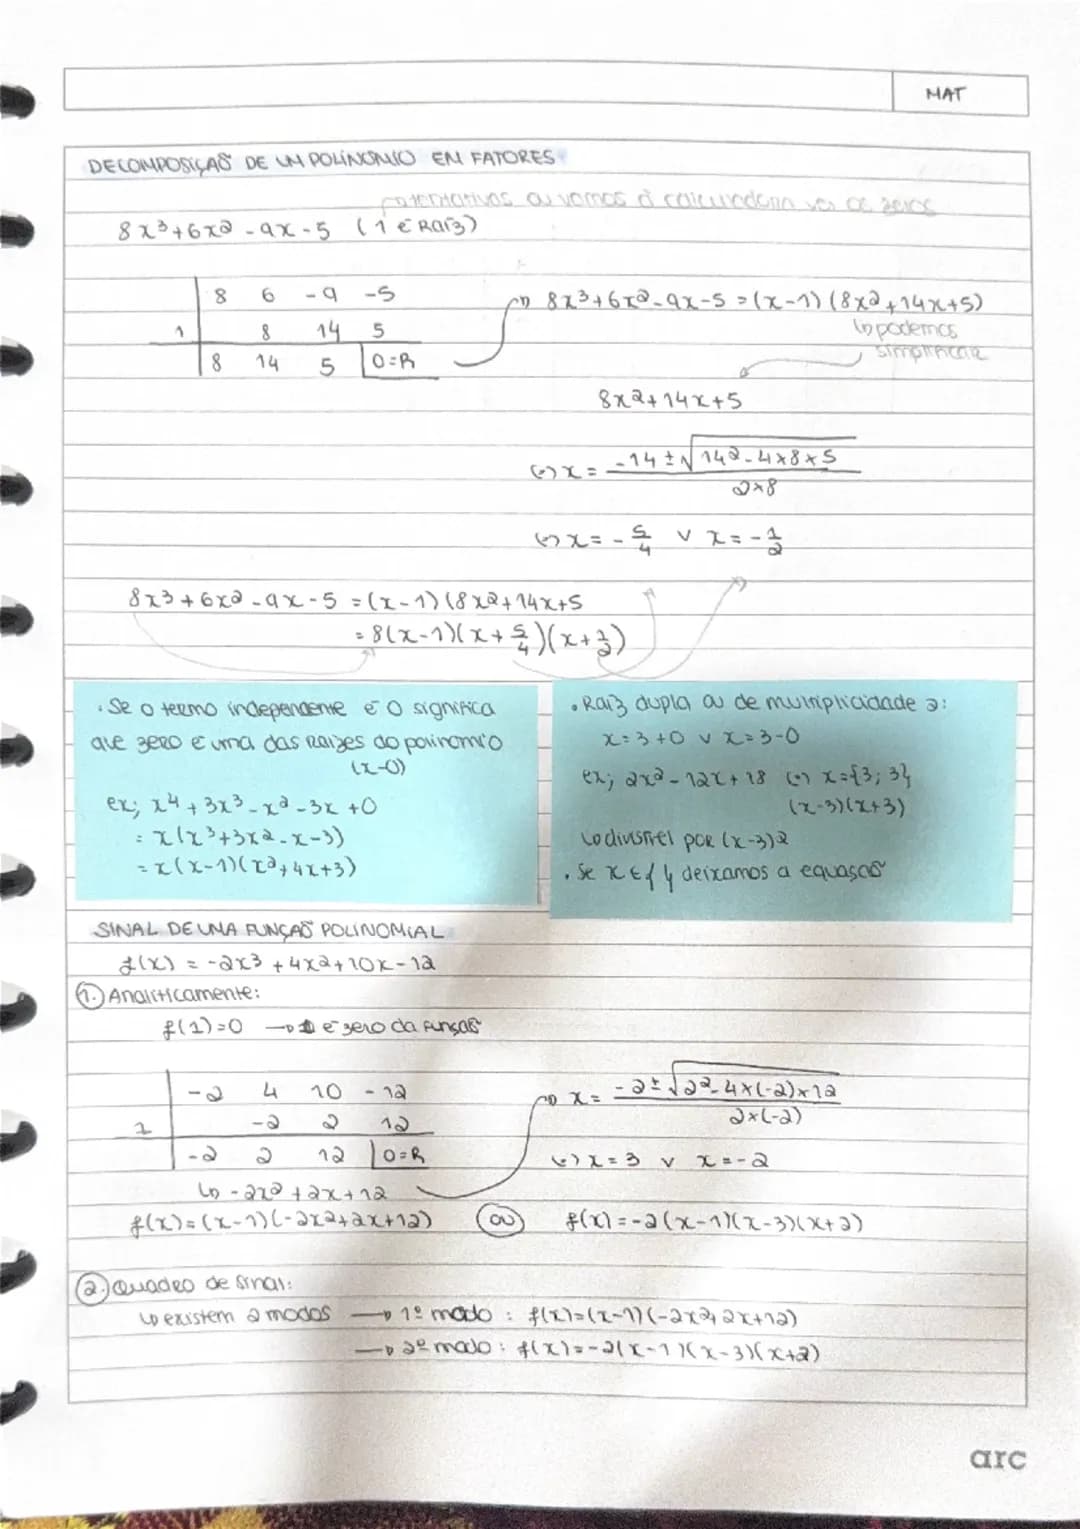 MAT
DECOMPOSIÇÃO DE UM POLINÓMIO EM FATORES
ou vamos à calculadora ver os zeros
8x³+6x²-9x-5 (1 é Raiz)
8 6 -9 -5
1 8 14 5
8 14 5 0=R
8x³+6x²-9x-5=(x-1)(8x²+14x+5)
↳ podemos
simplificar
8x²+14x+5
(=) x = -14±√14²-4×8×5 / 2×8
(=) x = -5/4 ∨ x = -1/2
8x³+6x²-9x-5 =(x-1)(8x²+14x+5
= 8(x-1)(x+5/4)(x+1/2)
• Se o termo independente é 0 significa
que zero é uma das raízes do polinómio
(x-0)
ex; x⁴+3x³-x²-3x+0
= x(x³+3x²-x-3)
= x(x-1)(x²+4x+3)
• Raiz dupla ou de multiplicidade 2:
x=3+0 ∨ x=3-0
ex; 2x²-12x+18 (=) x={3;3}
(x-3)(x+3)
↳ divisível por (x-3)²
• Se x∈{ } deixamos a equação
SINAL DE UMA FUNÇÃO POLINOMIAL
f(x) = -2x³+4x²+10x-12
1. Analiticamente:
f(1)=0 → 1 é zero da função
-2 4 10 -12
1 -2 2 12
-2 2 12 0=R
↳ -2x²+2x+12
→ x = -2±√2²-4×(-2)×12 / 2×(-2)
(=) x=3 ∨ x=-2
f(x)=(x-1)(-2x²+2x+12) ou f(x)=-2(x-1)(x-3)(x+2)
2. Quadro de sinal:
↳ existem 2 modos → 1º modo: f(x)=(x-1)(-2x²+2x+12)
→ 2º modo: f(x)=-2(x-1)(x-3)(x+2)
arc